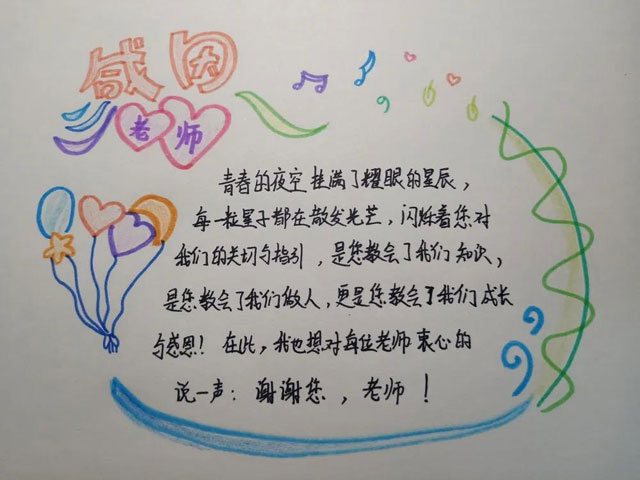 感恩
老师
青春的夜空挂满了耀眼的星辰，
每一粒星子都在散发光芒，闪烁着您对
我们的关切与指引，是您教会了我们知识，
是您教会了我们做人，更是您教会了我们成长
与感恩！在此，我也想对每位老师衷心的
说一声：谢谢您，老师！